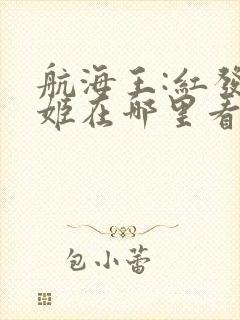 航海王:紅發
姬在哪里看
包小蕾